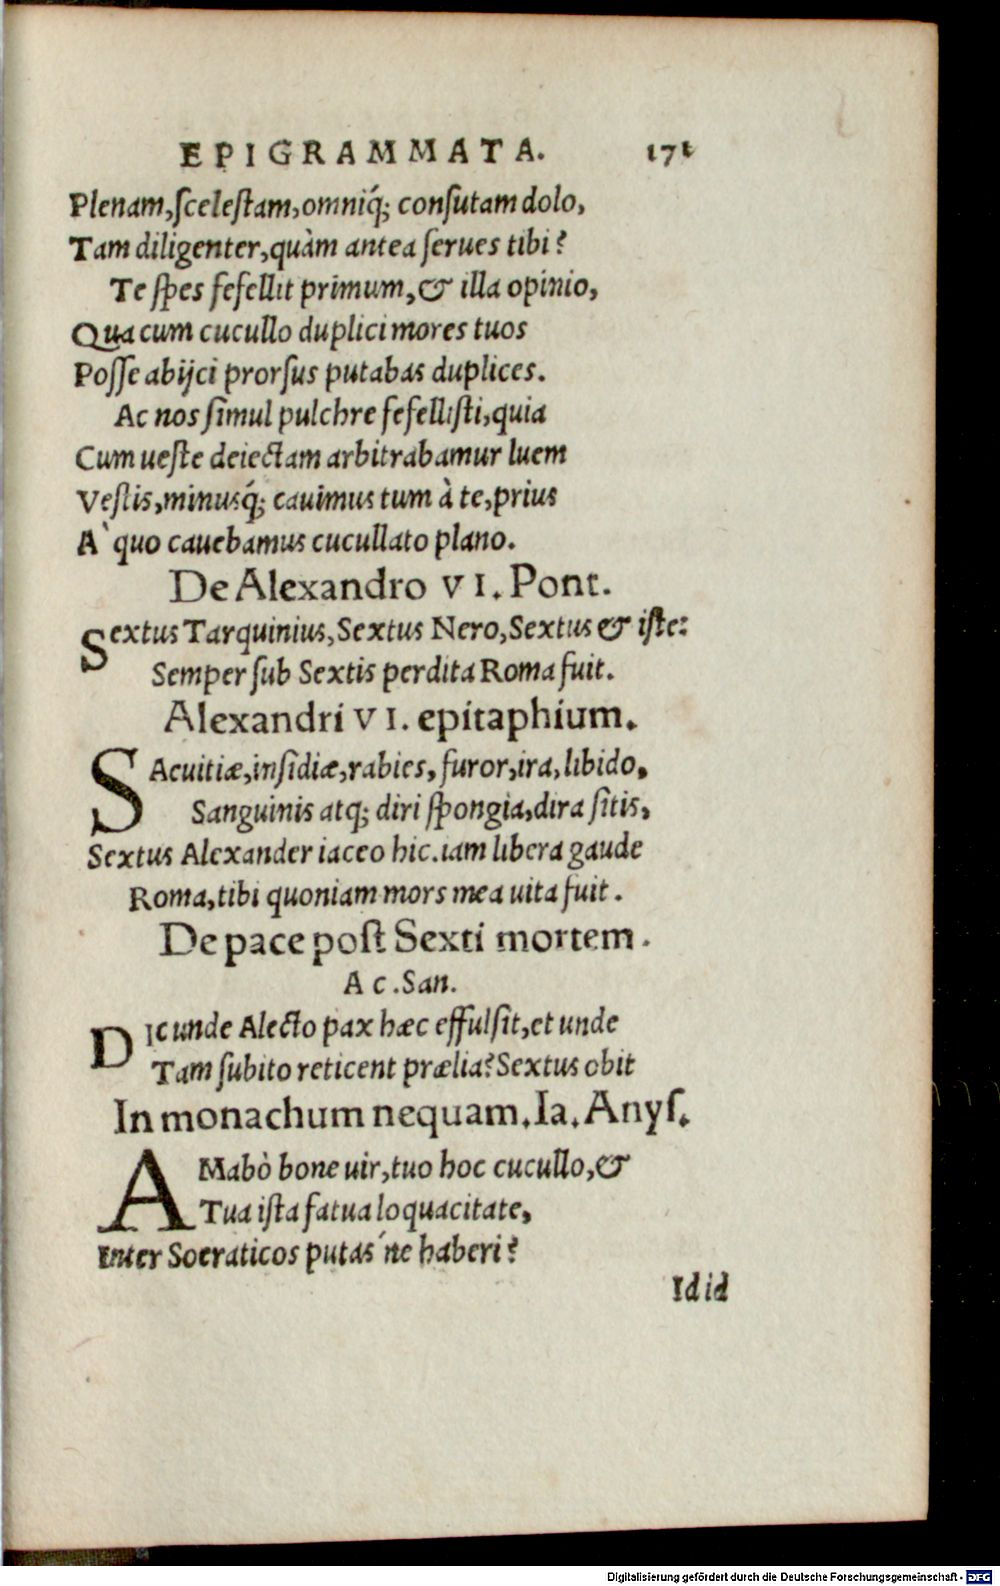 EPIGRAMMATA. 171
Plenam,scelestam,omniq́; consutam dolo,
Tam diligenter,quàm antea serues tibi?
Te spes fefellit primum,& illa opinio,
Qua cum cucullo duplici mores tuos
Posse abijci prorsus putabas duplices.
Ac nos simul pulchre fefellisti,quia
Cum ueste deiectam arbitrabamur luem
Vestis,minusq́; cauimus tum à te,prius
A` quo cauebamus cucullato plano.
De Alexandro VI. Pont.
Sextus Tarquinius,Sextus Nero,Sextus & iste:
Semper sub Sextis perdita Roma fuit.
Alexandri VI. epitaphium.
SAcuitiæ,insidiæ,rabies,furor,ira,libido,
Sanguinis atq; diri spongia,dira sitis,
Sextus Alexander iaceo hic.iam libera gaude
Roma,tibi quoniam mors mea uita fuit.
De pace post Sexti mortem.
Ac.San.
DIc unde Alecto pax hæc effulsit,et unde
Tam subito reticent prælia?Sextus obit
In monachum nequam.Ia.Anys.
AMabò bone uir,tuo hoc cucullo,&
Tua ista fatua loquacitate,
Inter Socraticos putas ́ne haberi?
Id id
Digitalisierung gefördert durch die Deutsche Forschungsgemeinschaft - DFG